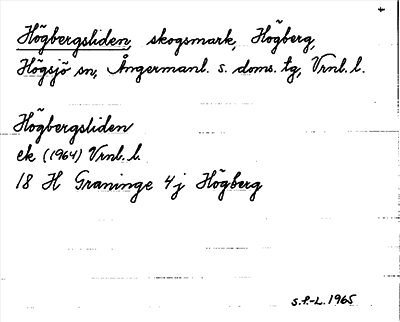 Högbergsliden, skogsmark, Högberg,
Högsjö sn, Ångermanl. s. doms. tg, Vrnl. l.
Högbergsliden
ek (1964) Vrnl. l.
18 H Graninge 4j Högberg
S.F.-L. 1965